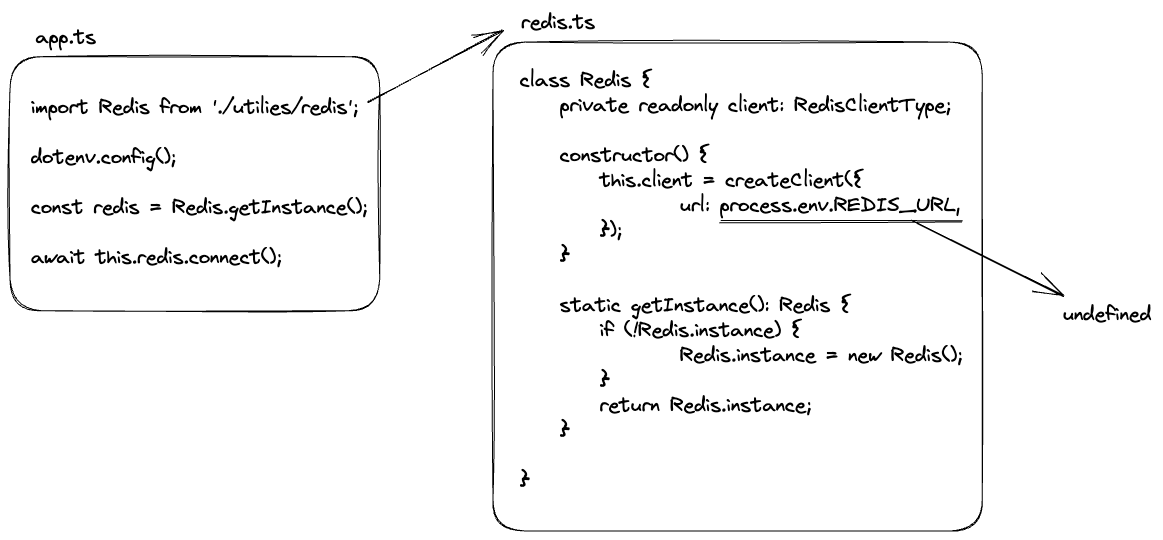 app.ts
import Redis from './utilies/redis';
dotenv.config();
const redis = Redis.getInstance();
await this.redis.connect();
redis.ts
class Redis {
private readonly client: RedisClientType;
constructor() {
this.client = createClient({
url: process.env.REDIS_URL,
});
}
static getInstance(): Redis {
if (!Redis.instance) {
Redis.instance = new Redis();
}
return Redis.instance;
}
}
undefined